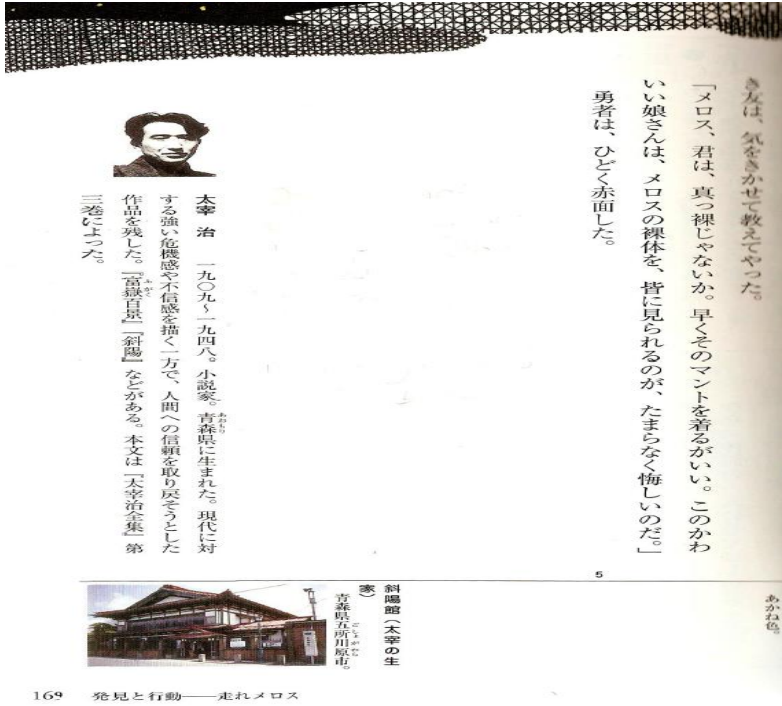 き友は、気をきかせて教えてやった。
「メロス、君は、真っ裸じゃないか。早くそのマントを着るがいい。このかわ
いい娘さんは、メロスの裸体を、皆に見られるのが、たまらなく悔しいのだ。」
勇者は、ひどく赤面した。
5
あかね色。
太宰 治 一九〇九～一九四八。小説家。青森県に生まれた。現代に対
する強い危機感や不信感を描く一方で、人間への信頼を取り戻そうとした
作品を残した。『富嶽百景』『斜陽』などがある。本文は『太宰治全集』第
三巻によった。
斜陽館（太宰の生
家）
青森県五所川原市。
169 発見と行動――走れメロス